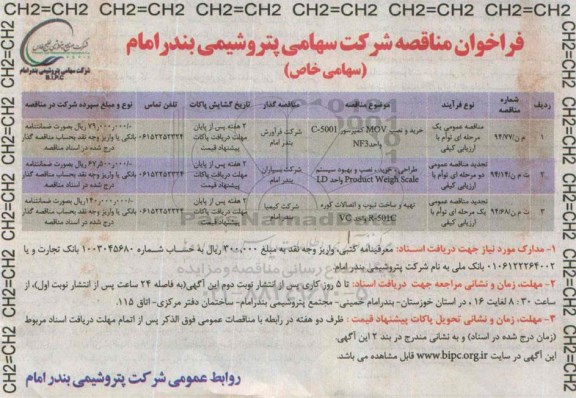 CH2=CH2 CH2=CH2 CH2=CH2 CH2=CH2 CH2=CH2 CH2=CH2 CH2=CH2
فراخوان مناقصه شرکت سهامی پتروشیمی بندر امام
(سهامی خاص)
شرکت سهامی پتروشیمی بندر امام
B.I.P.C
ردیف | شماره مناقصه | نوع فرآیند | موضوع مناقصه | مناقصه گذار | تاریخ گشایش پاکات | تلفن تماس | نوع و مبلغ سپرده شرکت در مناقصه
۱ | م ن/۹۴/۷۷ | مناقصه عمومی یک مرحله ای توأم با ارزیابی کیفی | خرید و نصب MOV کمپرسور C-5001 واحد NF3 | شرکت فرآورش بندر امام | ۲ هفته پس از پایان مهلت دریافت پاکات پیشنهاد قیمت | ۰۶۱۵۲۲۵۲۳۲۴ | ۷۹,۰۰۰,۰۰۰/- ریال بصورت ضمانتنامه بانکی یا واریز وجه نقد بحساب مناقصه گذار درج شده در اسناد مناقصه
۲ | م ن/۹۴/۱۴ | تجدید مناقصه عمومی دو مرحله ای توأم با ارزیابی کیفی | طراحی، خرید، نصب و بهبود سیستم Product Weigh Scale واحد LD | شرکت بسپاران بندر امام | ۲ هفته پس از پایان مهلت دریافت پاکات پیشنهاد قیمت | ۰۶۱۵۲۲۵۲۳۲۴ | ۶۷,۵۰۰,۰۰۰/- ریال بصورت ضمانتنامه بانکی یا واریز وجه نقد بحساب مناقصه گذار درج شده در اسناد مناقصه
۳ | م ن/۹۴/۶۸ | تجدید مناقصه عمومی یک مرحله ای توأم با ارزیابی کیفی | تهیه و ساخت تیوب و اتصالات کوره R-501C واحد VC | شرکت کیمیا بندر امام | ۲ هفته پس از پایان مهلت دریافت پاکات پیشنهاد قیمت | ۰۶۱۵۲۲۵۲۳۲۴ | ۱۴۰,۰۰۰,۰۰۰/- ریال بصورت ضمانتنامه بانکی یا واریز وجه نقد بحساب مناقصه گذار درج شده در اسناد مناقصه
۱- مدارک مورد نیاز جهت دریافت اسناد: معرفینامه کتبی، واریز وجه نقد به مبلغ ۳۰۰,۰۰۰ ریال به حساب شماره ۱۰۰۳۰۴۵۶۸۰ بانک تجارت و یا
۰۱۰۶۱۲۲۲۶۴۰۰۲ بانک ملی به نام شرکت پتروشیمی بندر امام
۲- مهلت، زمان و نشانی مراجعه جهت دریافت اسناد: تا ۵ روز کاری پس از انتشار نوبت دوم این آگهی(به فاصله ۲۴ ساعت پس از انتشار نوبت اول)، از
ساعت ۸:۳۰ لغایت ۱۶، در استان خوزستان-بندرامام خمینی- مجتمع پتروشیمی بندرامام- ساختمان دفتر مرکزی-اتاق ۱۱۵.
۳- مهلت، زمان و نشانی تحویل پاکات پیشنهاد قیمت: ظرف دو هفته در رابطه با مناقصات عمومی فوق الذکر پس از اتمام مهلت دریافت اسناد مربوط
(زمان درج شده در اسناد) و به نشانی مندرج در بند ۲ این آگهی.
این آگهی در سایت www.bipc.org.ir قابل مشاهده می باشد.
روابط عمومی شرکت پتروشیمی بندر امام